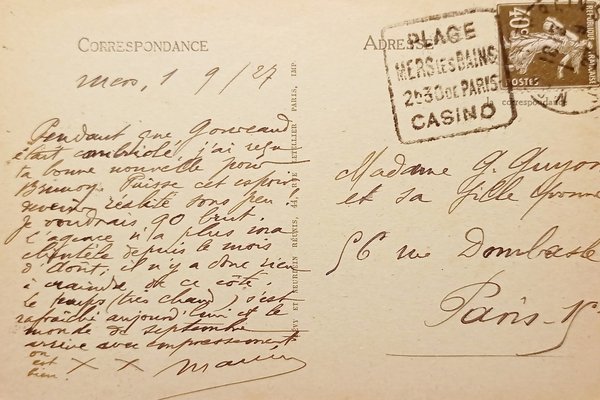 CORRESPONDANCE
Mers, 1 9/27
Pendant que
était cambriolé, j'ai reçu
ta bonne nouvelle pour
Brunoy. Puisse cet espoir
réalité sous peu
je voudrais 90 brut.
L'agence n'a plus ma
clientèle depuis le mois
d'Août, il n'y a donc rien
à craindre de ce côté.
le temps (très chaud) s'est
rafraîchi aujourd'hui et le
monde de septembre
arrive avec empressement
on
est
bien.
X X
LEVY ET NEURDEIN RÉUNIS, 44, RUE LETELLIER PARIS, IMP
ADRESSE
PLAGE
MERS LES BAINS
2H30 DE PARIS
CASINO
40c
REPUBLIQUE FRANÇAISE
POSTES
correspondance
Madame G. Guyon
et sa fille Yvonne
56 rue Dombasle
Paris-15e